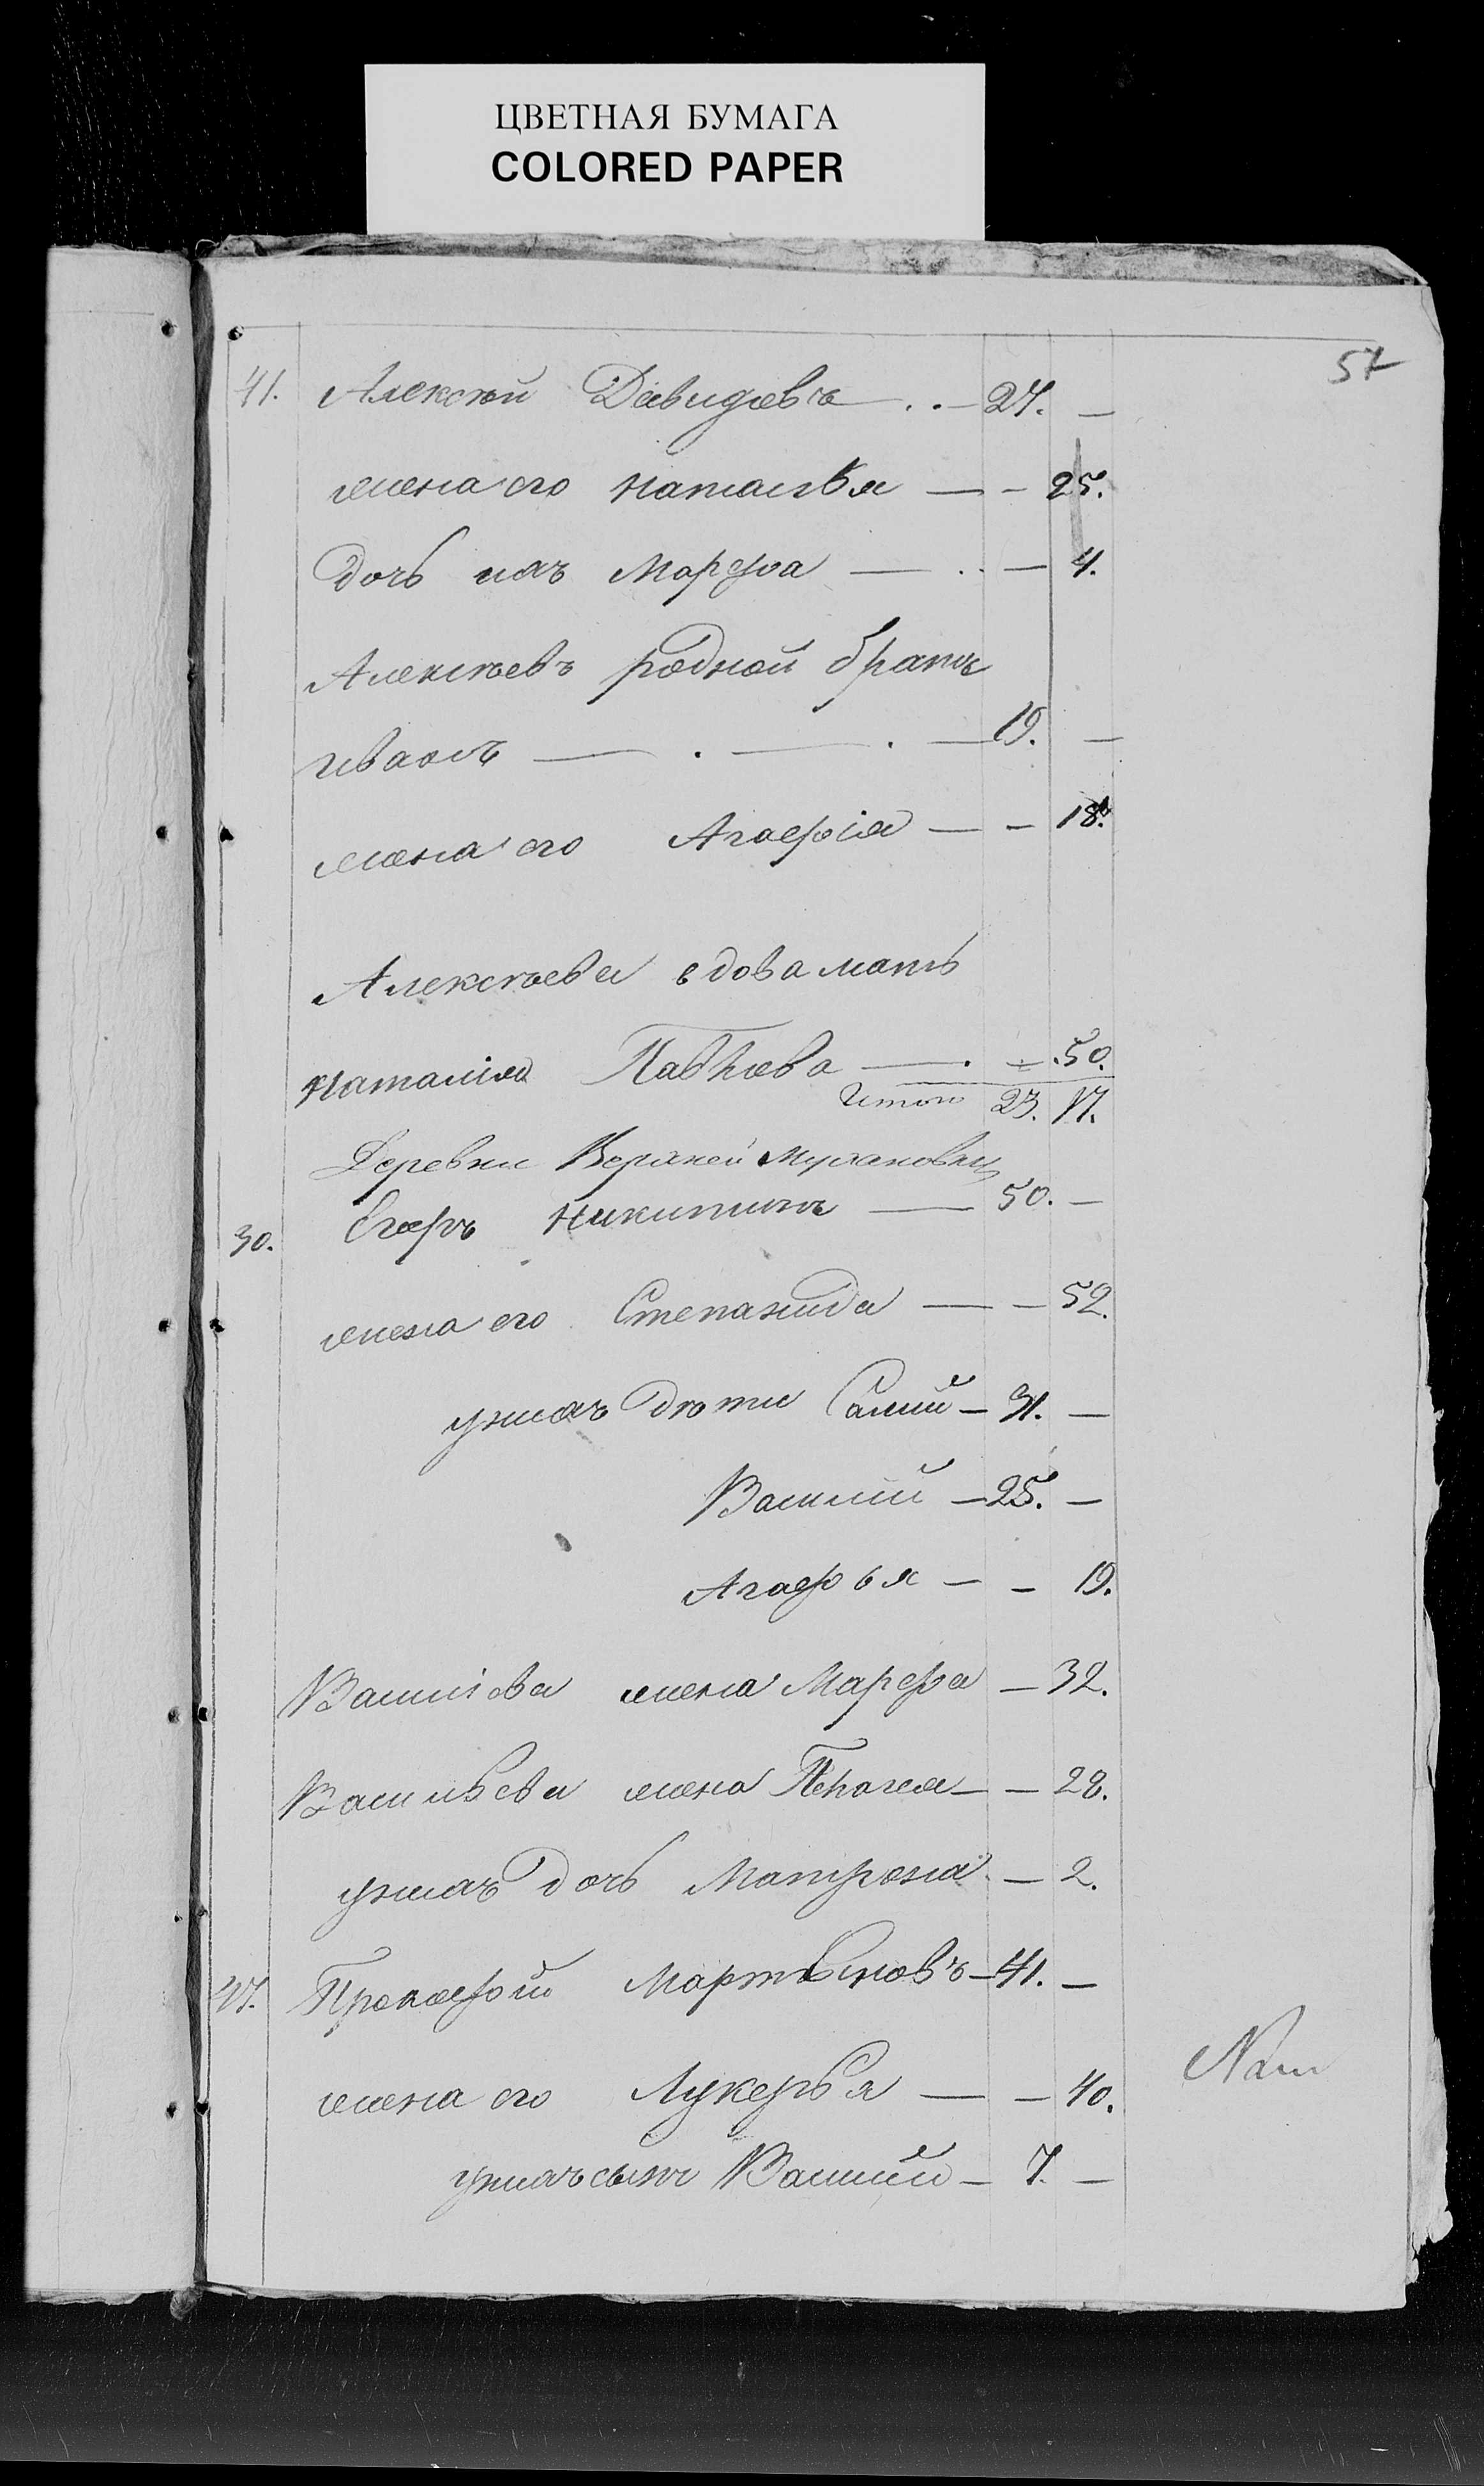 ЦВЕТНАЯ БУМАГА
COLORED PAPER
57
41. Алексѣй Давидовъ — 27. —
жена его Наталья — — 25.
Дочь ихъ Марфа — — 4.
Алексѣевъ родной братъ
Иванъ — 19. —
жена его Агафія — — 18.
Алексѣева вдова мать
Наталія — — 50.
Итого 23. 17.
Деревни Верхней
30. Егоръ Никитинъ — 50. —
жена его Степанида — — 52.
у нихъ дѣти — 31. —
Василій — 25. —
Агафья — — 19.
жена Марфа — 32.
Васильева жена — — 28.
у нихъ Дочь Матрона — 2.
Прокофій Мартыновъ — 41. —
жена его Лукерья — — 40.
у нихъ сынъ Василій — 7. —